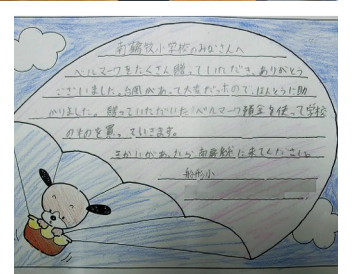 打鶴牧小学校のみなさんへ
ベルマークをたくさん贈っていただき、ありがとう
ございました。台風があって大変だったので、ほんとうに助
かりました。贈っていただいたベルマーク預金を使って学校
のものを買っていきます。
きかいがあったら南房総に来てください。
船形小